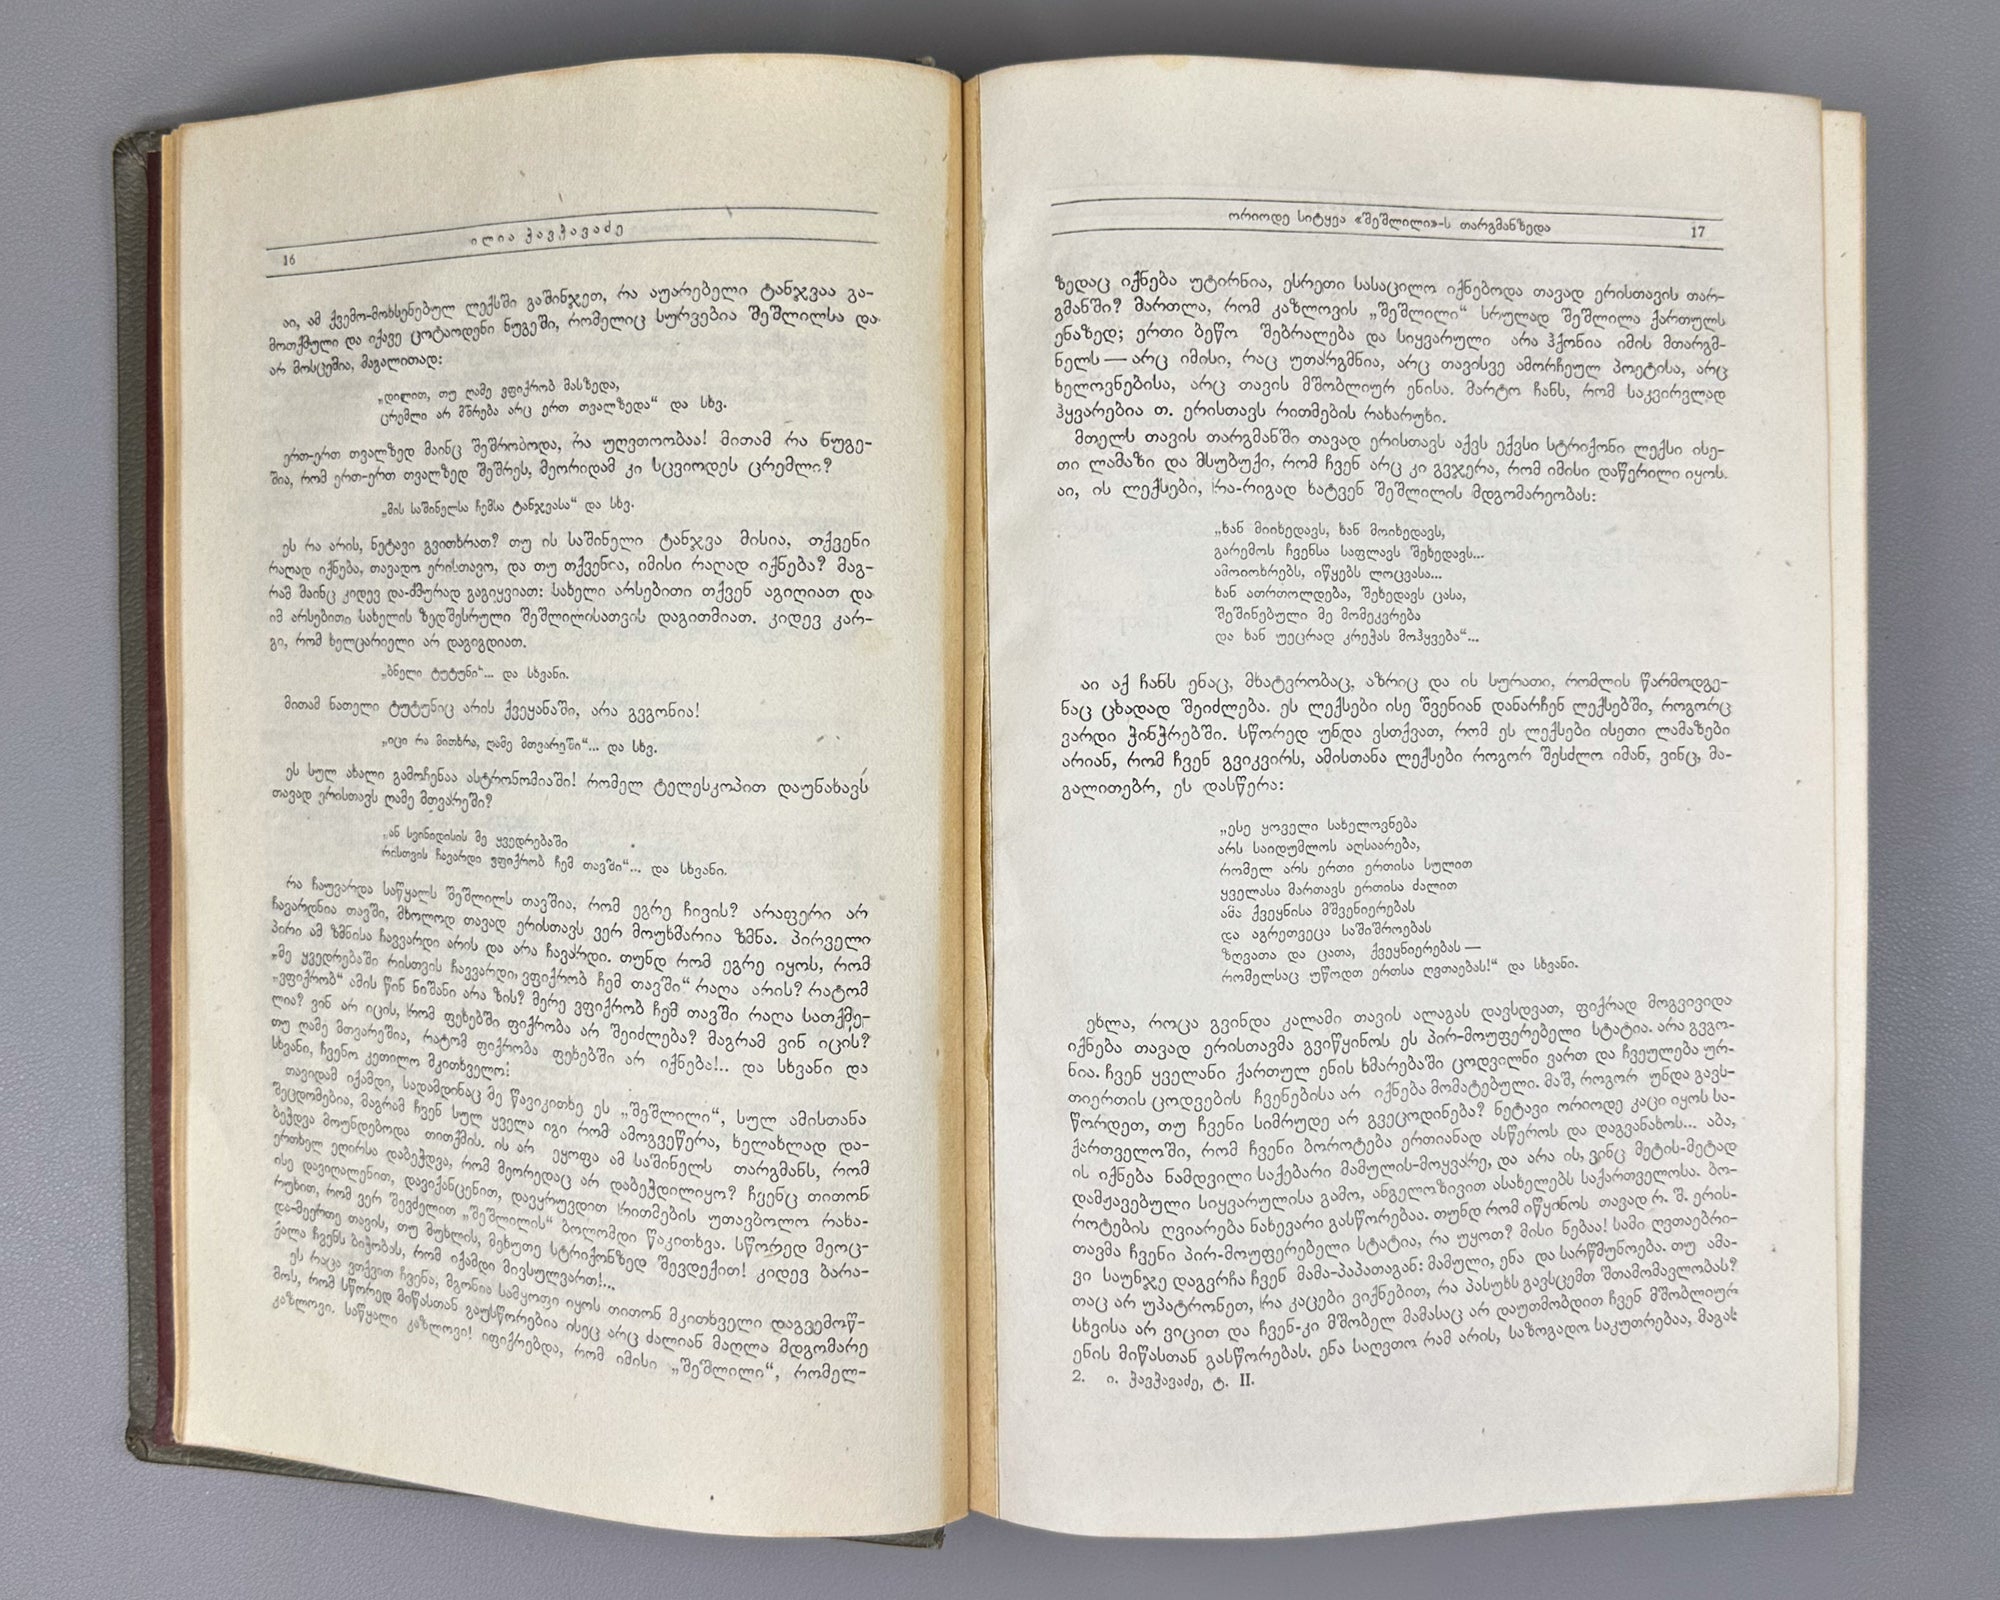 16
ილია ჭავჭავაძე
აი, ამ ქვემო-მოხსენებულ ლექსში გაშინჯეთ, რა აუარებელი ტანჯვაა გა-
მოთქმული და იქავე ცოტაოდენი ნუგეში, რომელიც სურვებია შეშლილსა და
არ მოსცემია, მაგალითად:
„დილით, თუ ღამე ვფიქრობ მასზედა,
ცრემლი არ მშრება არც ერთ თვალზედა“ და სხვ.
ერთ-ერთ თვალზედ მაინც შეშრობოდა, რა უღვთოობაა! მითამ რა ნუგე-
შია, რომ ერთ-ერთ თვალზედ შეშრეს, მეორიდამ კი სცვიოდეს ცრემლი?
„მის საშინელსა ჩემსა ტანჯვასა“ და სხვ.
ეს რა არის, ნეტავი გვითხრათ? თუ ის საშინელი ტანჯვა მისია, თქვენი
რაღად იქნება, თავადო ერისთავო, და თუ თქვენია, იმისი რაღად იქნება? მაგ-
რამ მაინც კიდევ და-ძმურად გაგიყვიათ: სახელი არსებითი თქვენ აგიღიათ და
იმ არსებითი სახელის ზედშესრული შეშლილისათვის დაგითმიათ. კიდევ კარ-
გი, რომ ხელცარიელი არ დაგიგდიათ.
„ბნელი ტუტუნი“... და სხვანი.
მითამ ნათელი ტუტუნიც არის ქვეყანაში, არა გვგონია!
„იცი რა მითხრა, ღამე მთვარეში“... და სხვ.
ეს სულ ახალი გამოჩენაა ასტრონომიაში! რომელ ტელესკოპით დაუნახავს
თავად ერისთავს ღამე მთვარეში?
„ან სვინიდისის მე ყვედრებაში
რისთვის ჩავარდი ვფიქრობ ჩემ თავში“... და სხვანი.
რა ჩაუვარდა საწყალს შეშლილს თავშია, რომ ეგრე ჩივის? არაფერი არ
ჩავარდნია თავში, მხოლოდ თავად ერისთავს ვერ მოუხმარია ზმნა. პირველი
პირი ამ ზმნისა ჩავვარდი არის და არა ჩავარდი. თუნდ რომ ეგრე იყოს, რომ
„მე ყვედრებაში რისთვის ჩავვარდი, ვფიქრობ ჩემ თავში“ რაღა არის? რატომ
„ვფიქრობ“ ამის წინ ნიშანი არა ზის? მერე ვფიქრობ ჩემ თავში რაღა სათქმე-
ლია? ვინ არ იცის, რომ ფეხებში ფიქრობა არ შეიძლება? მაგრამ ვინ იცის?
თუ ღამე მთვარეშია, რატომ ფიქრობა ფეხებში არ იქნება!.. და სხვანი და
სხვანი, ჩვენო კეთილო მკითხველო!
თავიდამ იქამდი, სადამდინაც მე წავიკითხე ეს „შეშლილი“, სულ ამისთანა
შეცდომებია, მაგრამ ჩვენ სულ ყველა იგი რომ ამოგვეწერა, ხელახლად და-
ბეჭდვა მოუნდებოდა თითქმის. ის არ ეყოფა ამ საშინელს თარგმანს, რომ
ერთხელ ეღირსა დაბეჭდვა, რომ მეორედაც არ დაბეჭდილიყო? ჩვენც თითონ
ისე დავიღალენით, დავიქანცენით, დავყრუვდით რითმების უთავბოლო რახა-
რუხით, რომ ვერ შევძელით „შეშლილის“ ბოლომდი წაკითხვა. სწორედ მეოც-
და-მეერთე თავის, თუ მუხლის, მეხუთე სტრიქონზედ შევდექით! კიდევ ბარა-
ქალა ჩვენს ბიჭობას, რომ იქამდი მივსულვართ!...
ეს რაცა ვთქვით ჩვენა, მგონია სამყოფი იყოს თითონ მკითხველი დაგვემოწ-
მოს, რომ სწორედ მიწასთან გაუსწორებია ისეც არც ძალიან მაღლა მდგომარე
კაზლოვი. საწყალი კაზლოვი! იფიქრებდა, რომ იმისი „შეშლილი“, რომელ-
ორიოდე სიტყვა «შეშლილი»-ს თარგმანზედა
17
ზედაც იქნება უტირნია, ესრეთი სასაცილო იქნებოდა თავად ერისთავის თარ-
გმანში? მართლა, რომ კაზლოვის „შეშლილი“ სრულად შეშლილა ქართულს
ენაზედ; ერთი ბეწო შებრალება და სიყვარული არა ჰქონია იმის მთარგმ-
ნელს — არც იმისი, რაც უთარგმნია, არც თავისვე ამორჩეულ პოეტისა, არც
ხელოვნებისა, არც თავის მშობლიურ ენისა. მარტო ჩანს, რომ საკვირვლად
ჰყვარებია თ. ერისთავს რითმების რახარუხი.
მთელს თავის თარგმანში თავად ერისთავს აქვს ექვსი სტრიქონი ლექსი ისე-
თი ლამაზი და მსუბუქი, რომ ჩვენ არც კი გვჯერა, რომ იმისი დაწერილი იყოს.
აი, ის ლექსები, რა-რიგად ხატვენ შეშლილის მდგომარეობას:
„ხან მიიხედავს, ხან მოიხედავს,
გარემოს ჩვენსა საფლავს შეხედავს...
ამოიოხრებს, იწყებს ლოცვასა...
ხან ათრთოლდება, შეხედავს ცასა,
შეშინებული მე მომეკვრება
და ხან უეცრად კრეჭას მოჰყვება“...
აი აქ ჩანს ენაც, მხატვრობაც, აზრიც და ის სურათი, რომლის წარმოდგე-
ნაც ცხადად შეიძლება. ეს ლექსები ისე შვენიან დანარჩენ ლექსებში, როგორც
ვარდი ჭინჭრებში. სწორედ უნდა ვსთქვათ, რომ ეს ლექსები ისეთი ლამაზები
არიან, რომ ჩვენ გვიკვირს, ამისთანა ლექსები როგორ შესძლო იმან, ვინც, მა-
გალითებრ, ეს დასწერა:
„ესე ყოველი სახელოვნება
არს საიდუმლოს აღსაარება,
რომელ არს ერთი ერთისა სულით
ყველასა მართავს ერთისა ძალით
ამა ქვეყნისა მშვენიერებას
და აგრეთვეცა საშიშროებას
ზღვათა და ცათა, ქვეყნიერებას —
რომელსაც უწოდთ ერთსა ღვთაებას!“ და სხვანი.
ეხლა, როცა გვინდა კალამი თავის ალაგას დავსდვათ, ფიქრად მოგვივიდა
იქნება თავად ერისთავმა გვიწყინოს ეს პირ-მოუფერებელი სტატია. არა გვგო-
ნია. ჩვენ ყველანი ქართულ ენის ხმარებაში ცოდვილნი ვართ და ჩვეულება ურ-
თიერთის ცოდვების ჩვენებისა არ იქნება მომატებული. მაშ, როგორ უნდა გავს-
წორდეთ, თუ ჩვენი სიმრუდე არ გვეცოდინება? ნეტავი ორიოდე კაცი იყოს სა-
ქართველოში, რომ ჩვენი ბოროტება ერთიანად ასწეროს და დაგვანახოს... აბა,
ის იქნება ნამდვილი საქებარი მამულის-მოყვარე, და არა ის, ვინც მეტის-მეტად
დამჟავებული სიყვარულისა გამო, ანგელოზივით ასახელებს საქართველოსა. ბო-
როტების ღვიარება ნახევარი გასწორებაა. თუნდ რომ იწყინოს თავად რ. შ. ერის-
თავმა ჩვენი პირ-მოუფერებელი სტატია, რა უყოთ? მისი ნებაა! სამი ღვთაებრი-
ვი საუნჯე დაგვრჩა ჩვენ მამა-პაპათაგან: მამული, ენა და სარწმუნოება. თუ ამა-
თაც არ უპატრონეთ, რა კაცები ვიქნებით, რა პასუხს გავსცემთ შთამომავლობას?
სხვისა არ ვიცით და ჩვენ-კი მშობელ მამასაც არ დაუთმობდით ჩვენ მშობლიურ
ენის მიწასთან გასწორებას. ენა საღვთო რამ არის, საზოგადო საკუთრებაა, მაგას
2. ი. ჭავჭავაძე, ტ. II.